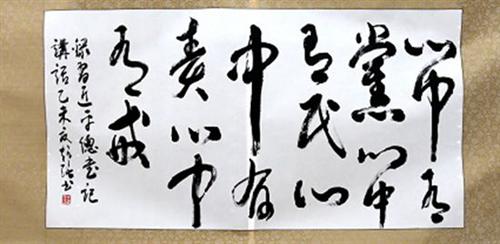 心中有
黨心中
有民心
中有
責心中
有戒
録習近平總書記
講話乙未夏 書